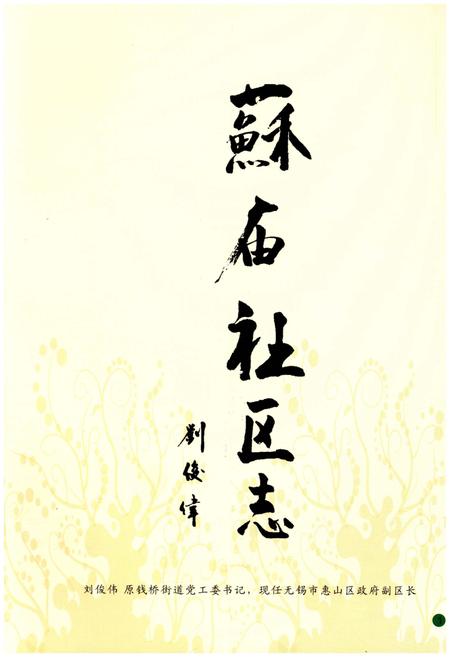 蘇庙社区志
劉俊偉
刘俊伟 原钱桥街道党工委书记，现任无锡市惠山区政府副区长